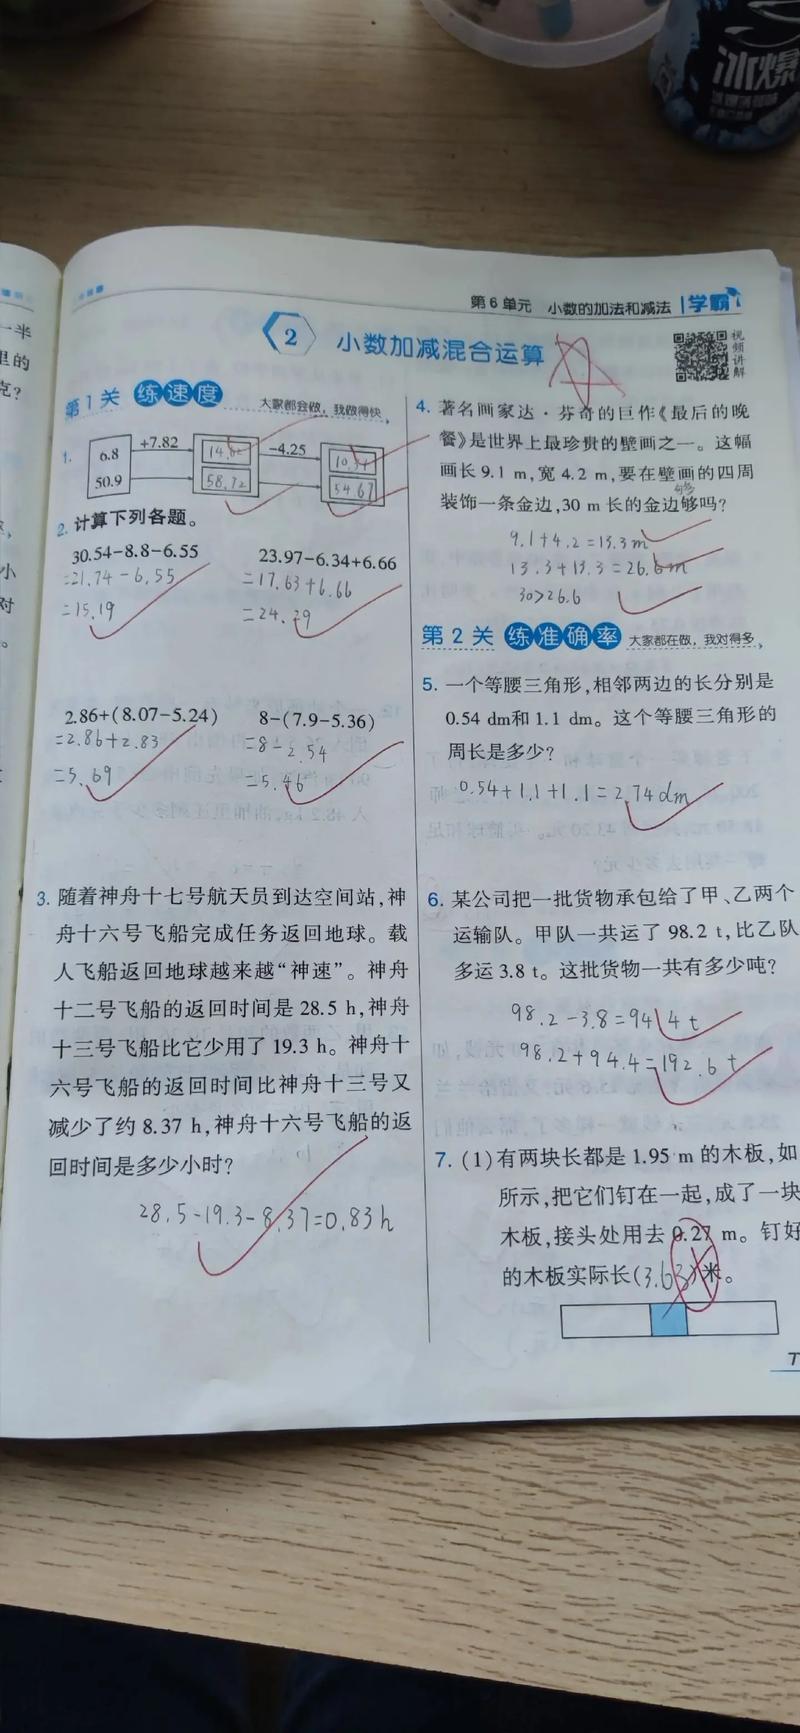 冰爆
一半
里的
克?
小
对
。
第6单元 小数的加法和减法 学霸
2 小数加减混合运算
视频讲解
第1关 练速度 大家都会做,我做得快
1. 6.8 +7.82 14.62 -4.25 10.37
50.9 58.72 54.67
2. 计算下列各题。
30.54-8.8-6.55 23.97-6.34+6.66
=21.74-6.55 =17.63+6.66
=15.19 =24.29
2.86+(8.07-5.24) 8-(7.9-5.36)
=2.86+2.83 =8-2.54
=5.69 =5.46
3. 随着神舟十七号航天员到达空间站,神
舟十六号飞船完成任务返回地球。载
人飞船返回地球越来越“神速”。神舟
十二号飞船的返回时间是 28.5 h,神舟
十三号飞船比它少用了 19.3 h。神舟十
六号飞船的返回时间比神舟十三号又
减少了约 8.37 h,神舟十六号飞船的返
回时间是多少小时?
28.5-19.3-8.37=0.83h
4. 著名画家达·芬奇的巨作《最后的晚
餐》是世界上最珍贵的壁画之一。这幅
画长 9.1 m,宽 4.2 m,要在壁画的四周
装饰一条金边,30 m 长的金边够吗?
够
9.1+4.2=13.3m
13.3+13.3=26.6m
30>26.6
第2关 练准确率 大家都在做,我对得多
5. 一个等腰三角形,相邻两边的长分别是
0.54 dm和 1.1 dm。这个等腰三角形的
周长是多少?
0.54+1.1+1.1=2.74dm
6. 某公司把一批货物承包给了甲、乙两个
运输队。甲队一共运了 98.2 t,比乙队
多运 3.8 t。这批货物一共有多少吨?
98.2-3.8=94.4t
98.2+94.4=192.6t
7. (1)有两块长都是 1.95 m 的木板,如
所示,把它们钉在一起,成了一块
木板,接头处用去 0.27 m。钉好
的木板实际长(3.63)米。